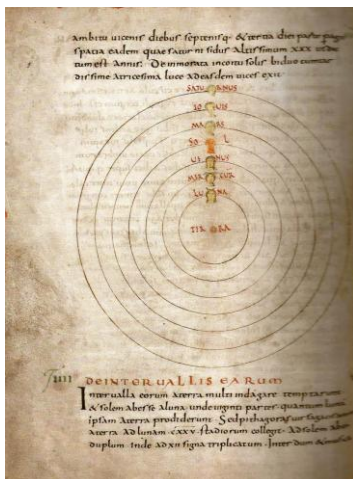 ambitu vicenis diebus septenisq· & tertia diei parte pagit
spatia eadem quae saturni sidus altissimum XXX
tum est annis: Demorata incoitu solis biduo cum tar
dissime atricesima luce adeasdem vices exit·
SATU RNUS
IO UIS
MA RS
SO L
UE NUS
MER CUR
LU NA
TER RA
IIII DE INTERUALLIS EARUM
Interualla eorum aterra multi indagare temptarunt
& solem abesse aluna undeuiginti partes quantum luna
ipsam aterra prodiderunt· Sed pithagoras uir sagacis
aterra ad lunam· CXXV· stadiorum collegit· Ad solem abea
duplum· Inde ad XII signa triplicatum· Interdum & musica